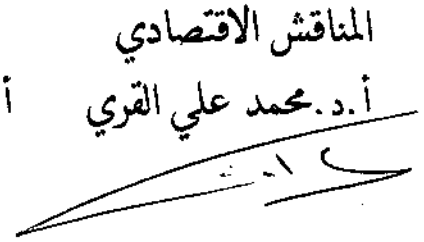 المناقش الاقتصادي
أ.د. محمد علي القري أ